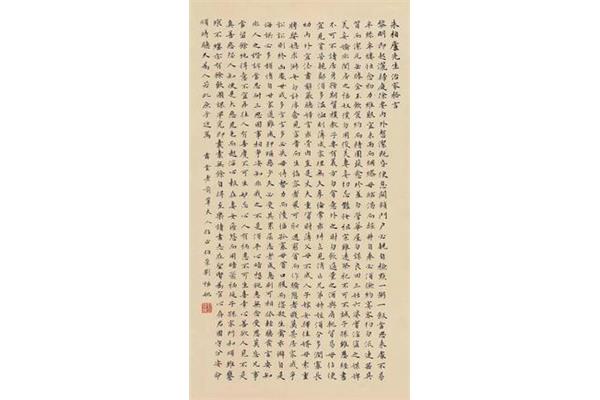 朱柏廬先生治家格言
黎明即起灑掃庭除要內外整潔既昏便息關鎖門戶必親自檢點一粥一飯當思來處不易
半絲半縷恒念物力維艱宜未雨而綢繆毋臨渴而掘井自奉必須儉約宴客切勿流連器具
質而潔瓦缶勝金玉飲食約而精園蔬愈珍羞勿營華屋勿謀良田三姑六婆實淫盜之媒婢
美妾嬌非閨房之福奴僕勿用俊美妻妾切忌豔妝祖宗雖遠祭祀不可不誠子孫雖愚經書
不可不讀居身務期質樸教子要有義方勿貪意外之財勿飲過量之酒與肩挑貿易毋佔便
宜見貧苦親鄰須多溫恤刻薄成家理無久享倫常乖舛立見消亡兄弟叔姪須分多潤寡長
幼內外宜法肅辭嚴聽婦言乖骨肉豈是丈夫重貲財薄父母不成人子嫁女擇佳婿毋索重
聘娶媳求淑女勿計厚奩見富貴而生諂容者最可恥遇貧窮而作驕態者賤莫甚居家戒爭
訟訟則終凶處世戒多言言多必失毋恃勢力而凌逼孤寡毋貪口腹而恣殺生禽乖僻自是
悔誤必多頹惰自甘家道難成狎暱惡少久必受其累屈志老成急則可相依輕聽發言安知
非人之譖訴當忍耐三思因事相爭安知非我之不是須平心暗想施惠無念受恩莫忘凡事
當留餘地得意不宜再往人有喜慶不可生妒忌心人有禍患不可生喜幸心善欲人見不是
真善惡恐人知便是大惡見色而起淫心報在妻女匿怨而用暗箭禍延子孫家門和順雖饔
飧不繼亦有餘歡國課早完即囊橐無餘自得至樂讀書志在聖賢爲官心存君國守分安命
順時聽天爲人若此庶乎近焉